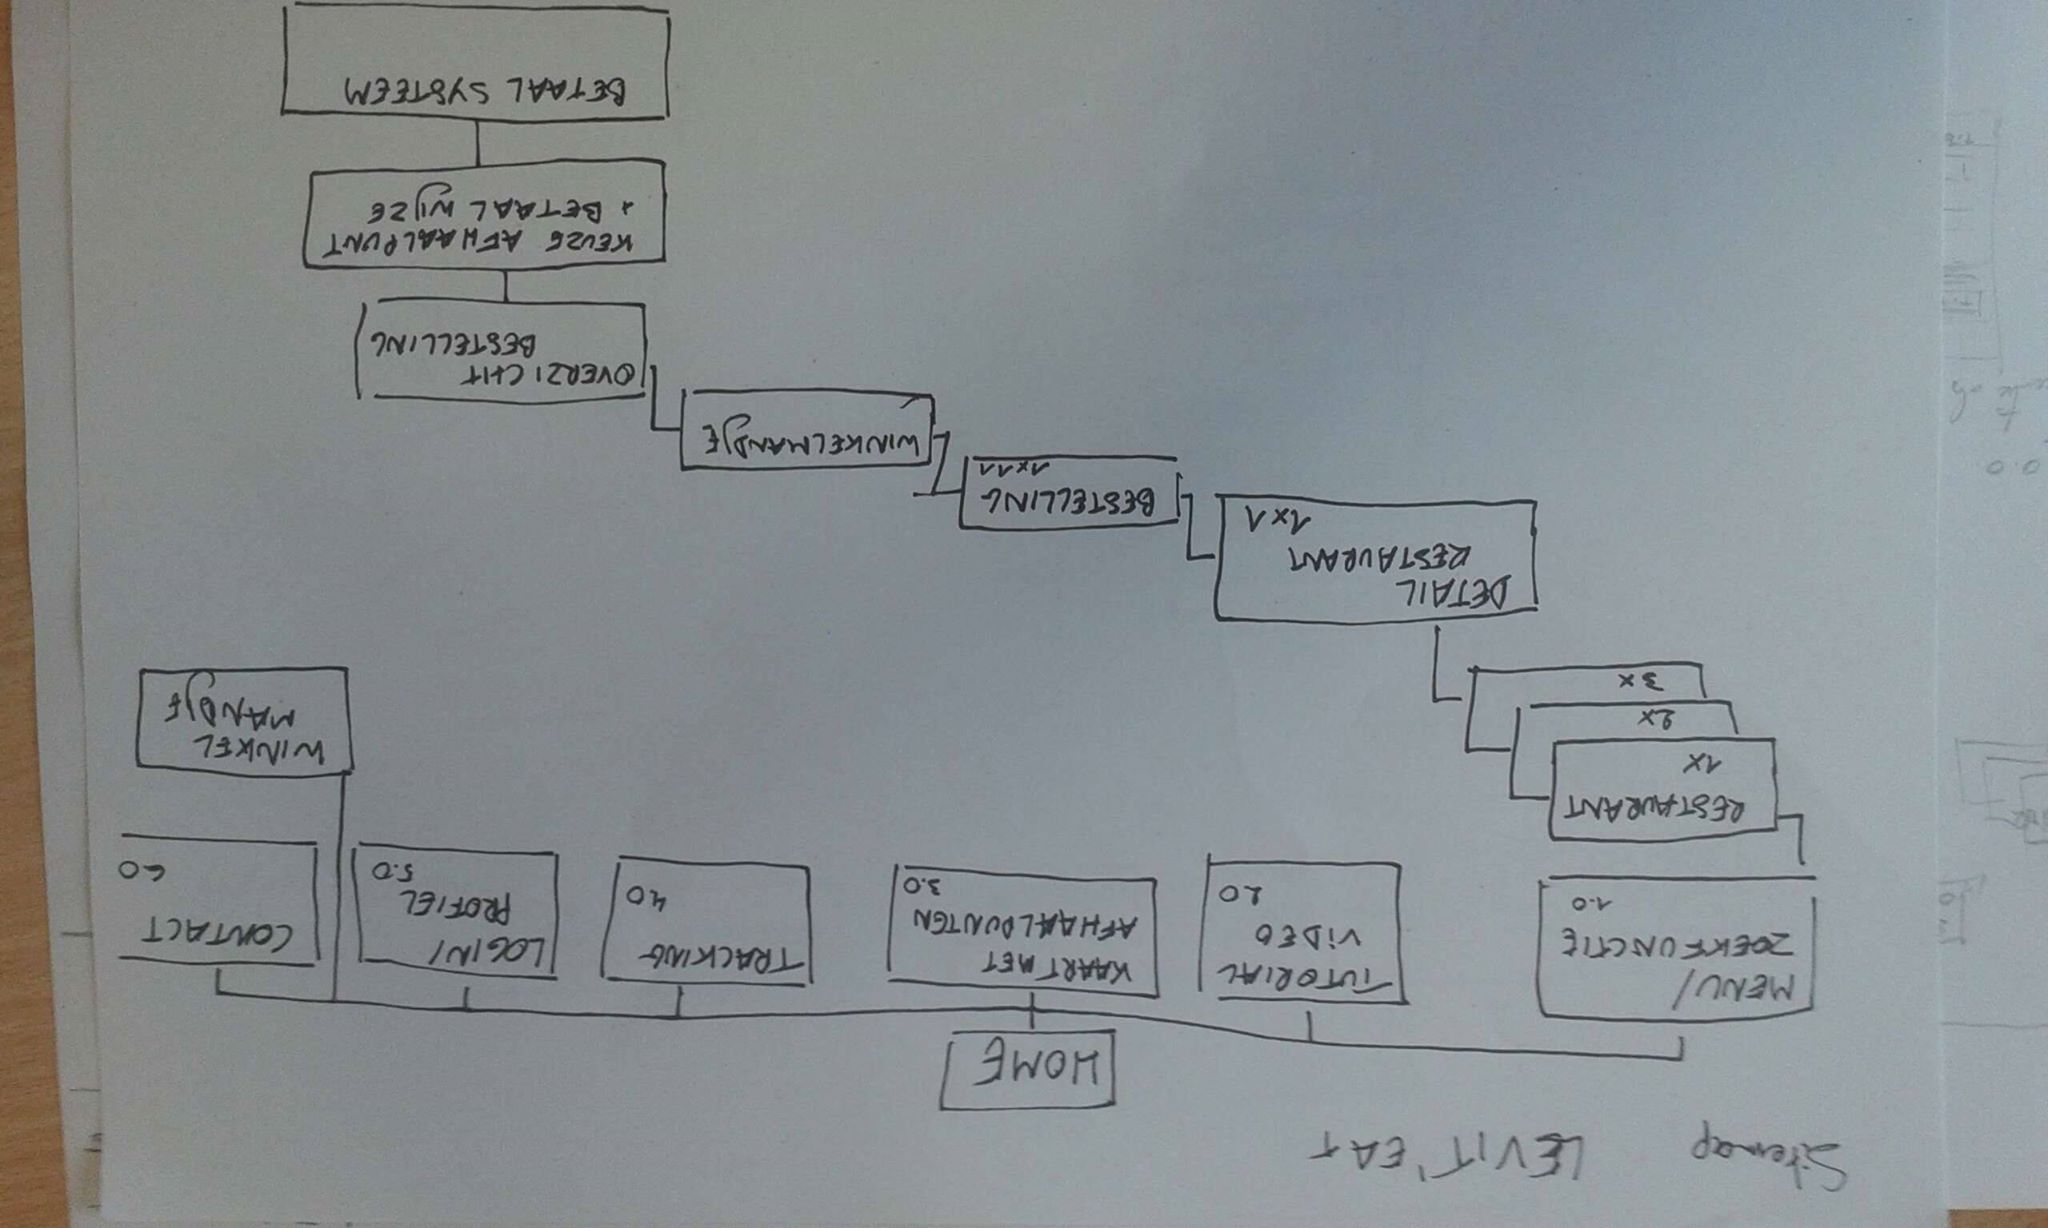 Sitemap LEVIT'EAT
HOME
MENU/
ZOEKFUNCTIE
1.0
TUTORIAL
VIDEO
2.0
KAART MET
AFHAALPUNTEN
3.0
TRACKING
4.0
LOGIN/
PROFIEL
5.0
CONTACT
6.0
WINKEL
MANDJE
RESTAURANT
1x
2x
3x
DETAIL
RESTAURANT
1x1
BESTELLING
1x11
WINKELMANDJE
OVERZICHT
BESTELLING
KEUZE AFHAALPUNT
+ BETAALWIJZE
BETAAL SYSTEEM
0.0